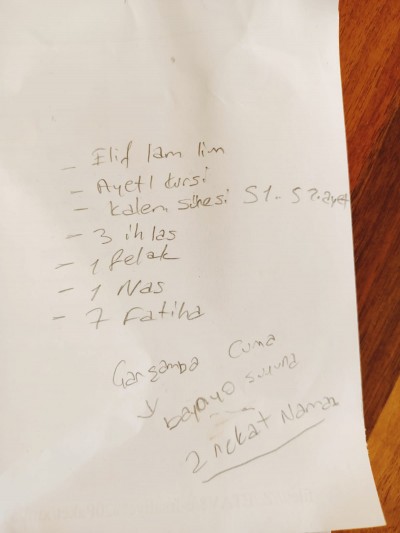 - Elif lam lim
- Ayetl kursi
- Kalem sûresi 51-52.ayet
- 3 ihlas
- 1 felak
- 1 Nas
- 7 Fatiha
Çarşamba Cuma
banyo suyuna
2 rekat Namaz